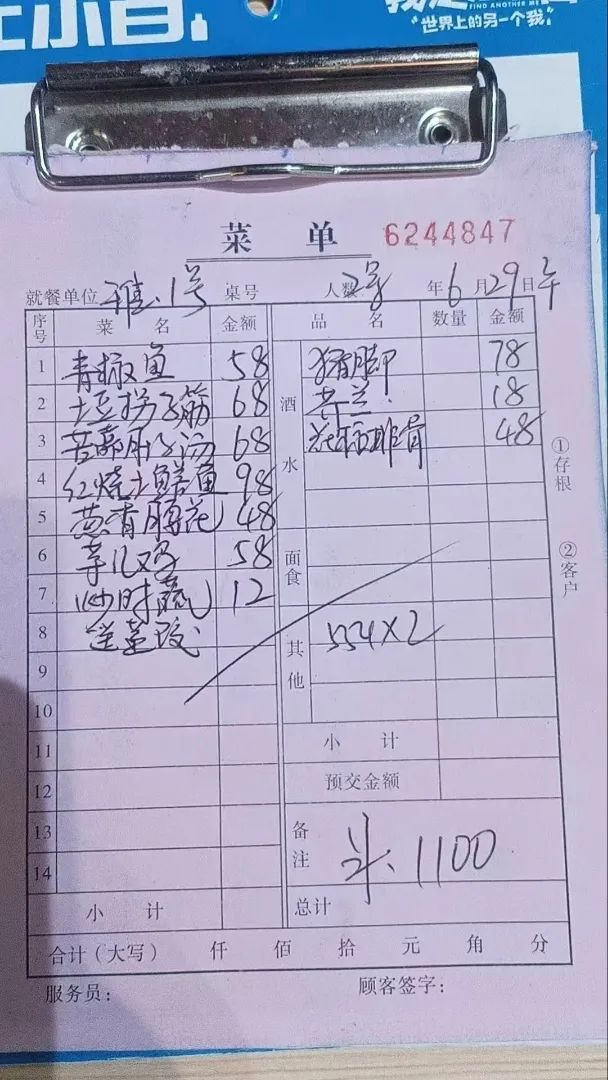 世界上的另一个我
FIND ANOTHER ME
菜 单 6244847
就餐单位 雅.1号 桌号 人数 2号 年6月29日午
序号 菜 名 金额 品 名 数量 金额
1 青椒鱼 58 酒水 猪脚 78
2 土豆拐子筋 68 芥兰 18
3 68 排骨 48
4 红烧土鲜鱼 98
5 葱香腰花 48
6 芋儿鸡 58 面食
7 炒时蔬 12
8 送 其他 554×2
9
10
11 小 计
12 预交金额
13 备注 1100
14
小 计 总计
合计（大写） 仟 佰 拾 元 角 分
服务员： 顾客签字：
①存根
②客户